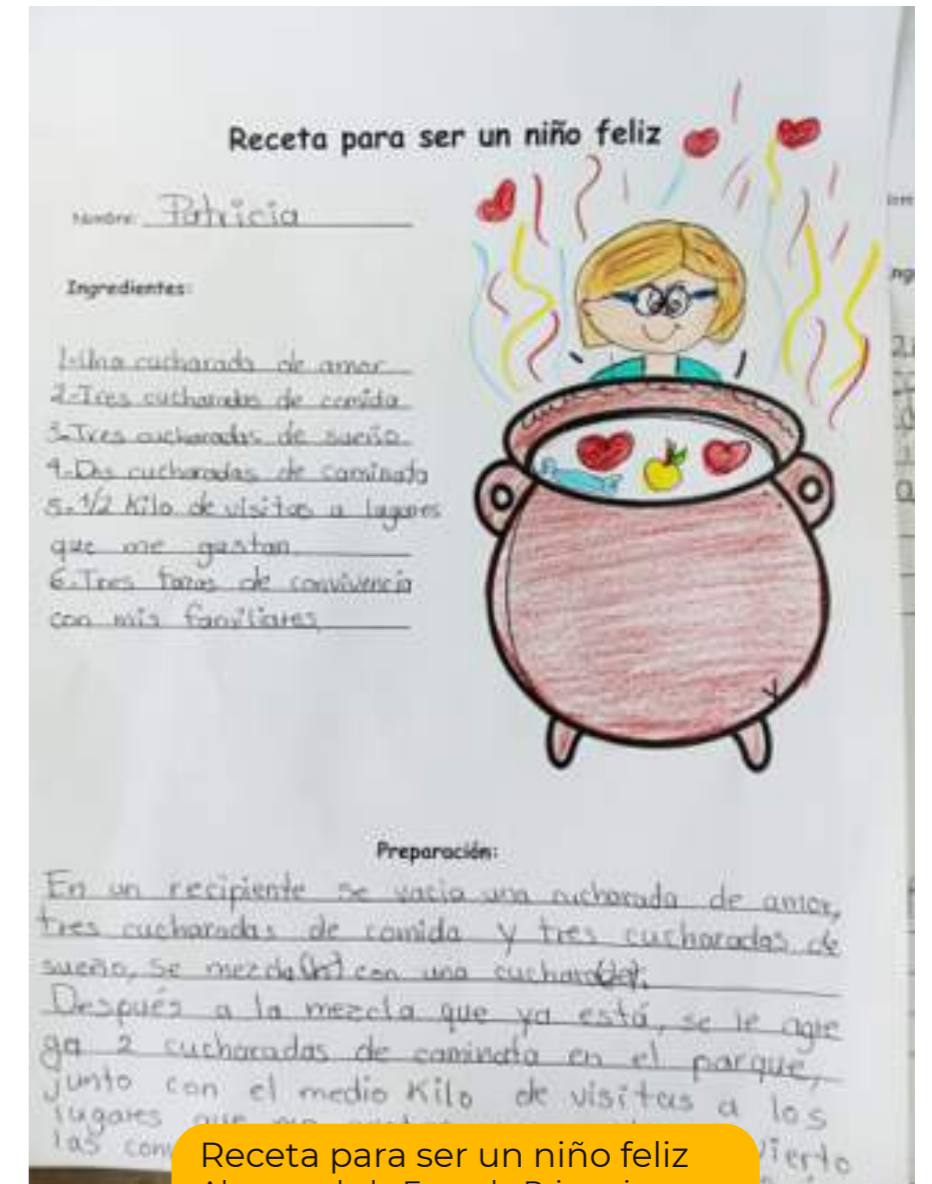 Receta para ser un niño feliz
Nombre: Patricia
Ingredientes:
1-Una cucharada de amor
2-Tres cucharadas de comida
3-Tres cucharadas de sueño
4-Dos cucharadas de caminata
5-1/2 Kilo de visitas a lugares
que me gustan
6-Tres tazas de convivencia
con mis familiares
Preparación:
En un recipiente se vacia una cucharada de amor,
tres cucharadas de comida y tres cucharadas de
sueño, se mezcla con una
Después a la mezcla que ya está, se le agre
ga 2 cucharadas de caminata en el parque,
junto con el medio Kilo de visitas a los
lugares que
las vierto
Receta para ser un niño feliz